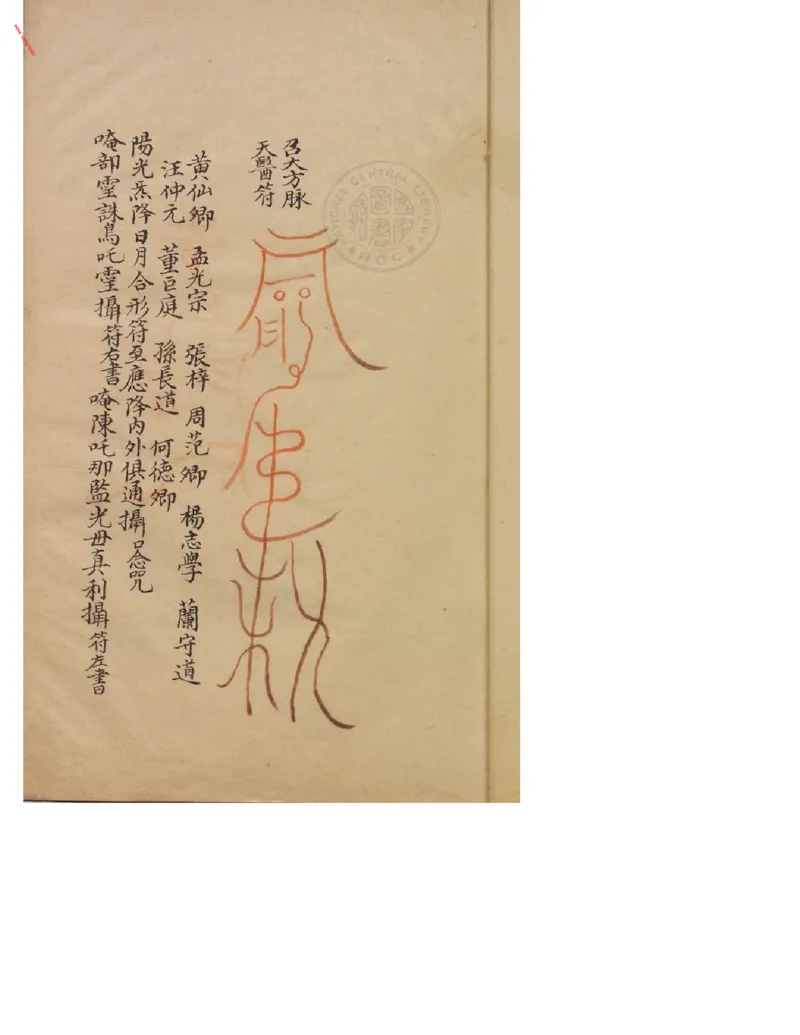 召大方脉
天醫符
黄仙卿 孟光宗 張梓 周范卿 楊志學 蘭守道
汪仲元 董巨庭 孫長道 何德卿
陽光炁降日月合形符至應降内外俱通攝口念咒
唵部霊誅鳥吒霊攝符右書唵陳吒那監光毋真利攝符左書
NATIONAL CENTRAL LIBRARY
ROC